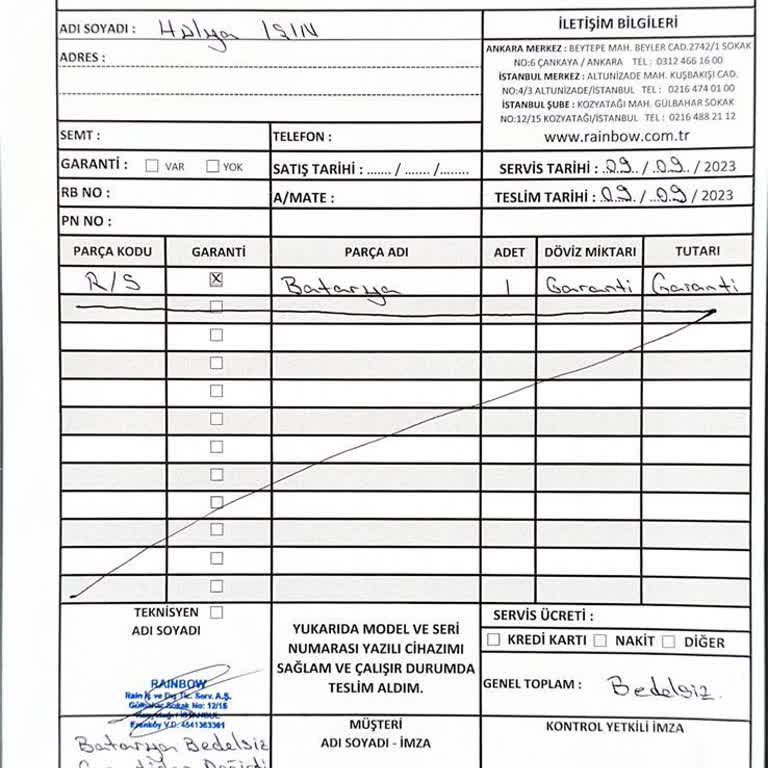 ADI SOYADI : Hülya IŞIN
ADRES :
İLETİŞİM BİLGİLERİ
ANKARA MERKEZ : BEYTEPE MAH. BEYLER CAD.2742/1 SOKAK
NO:6 ÇANKAYA / ANKARA TEL : 0312 466 16 00
İSTANBUL MERKEZ : ALTUNİZADE MAH. KUŞBAKIŞI CAD.
NO:4/3 ALTUNİZADE/İSTANBUL TEL : 0216 474 01 00
İSTANBUL ŞUBE : KOZYATAĞI MAH. GÜLBAHAR SOKAK
NO:12/15 KOZYATAĞI/İSTANBUL TEL : 0216 488 21 12
www.rainbow.com.tr
SEMT : TELEFON :
GARANTİ : VAR YOK SATIŞ TARİHİ : ....... / ....... /........ SERVİS TARİHİ : 09 / 09 / 2023
RB NO : A/MATE : TESLİM TARİHİ : 09 / 09 / 2023
PN NO :
PARÇA KODU GARANTİ PARÇA ADI ADET DÖVİZ MİKTARI TUTARI
R/S X Batarya 1 Garanti Garanti
TEKNİSYEN
ADI SOYADI
YUKARIDA MODEL VE SERİ
NUMARASI YAZILI CİHAZIMI
SAĞLAM VE ÇALIŞIR DURUMDA
TESLİM ALDIM.
SERVİS ÜCRETİ :
KREDİ KARTI NAKİT DİĞER
GENEL TOPLAM : Bedelsiz.
RAINBOW
Rain İç ve Dış Tic. Serv. A.Ş.
Gülbahar Sokak No: 12/15
MÜŞTERİ
ADI SOYADI - İMZA
KONTROL YETKİLİ İMZA
Batarya Bedelsiz